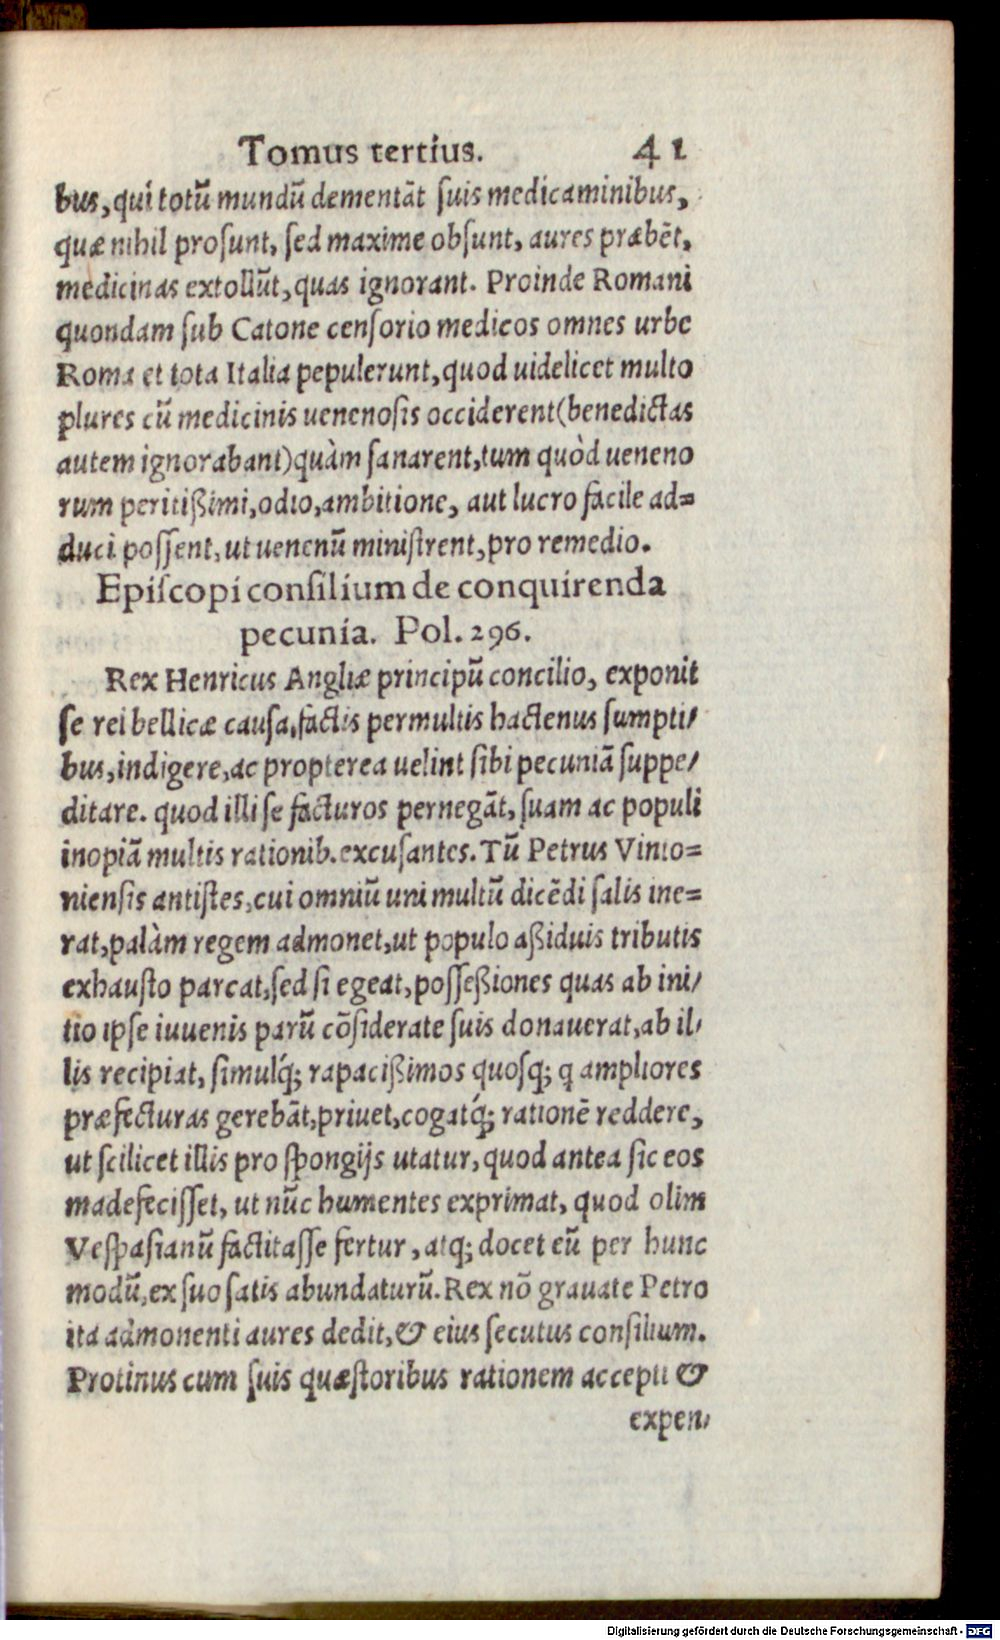 Tomus tertius. 41
bus, qui totũ mundũ dementãt suis medicaminibus,
quæ nihil prosunt, sed maxime obsunt, aures præbẽt,
medicinas extollũt, quas ignorant. Proinde Romani
quondam sub Catone censorio medicos omnes urbe
Roma et tota Italia pepulerunt, quod uidelicet multo
plures cũ medicinis uenenosis occiderent (benedictas
autem ignorabant) quàm sanarent, tum quòd ueneno
rum peritißimi, odio, ambitione, aut lucro facile ad=
duci possent, ut uenenũ ministrent, pro remedio.
Episcopi consilium de conquirenda
pecunia. Pol. 296.
Rex Henricus Angliæ principũ concilio, exponit
se rei bellicæ causa, factis permultis hactenus sumpti/
bus, indigere, ac propterea uelint sibi pecuniã suppe/
ditare. quod illi se facturos pernegãt, suam ac populi
inopiã multis rationib. excusantes. Tũ Petrus Vinto=
niensis antistes, cui omniũ uni multũ dicẽdi salis ine=
rat, palàm regem admonet, ut populo aßiduis tributis
exhausto parcat, sed si egeat, posseßiones quas ab ini/
tio ipse iuuenis parũ cõsiderate suis donauerat, ab il/
lis recipiat, simulq́; rapacißimos quosq; q ampliores
præfecturas gerebãt, priuet, cogatq́; rationẽ reddere,
ut scilicet illis pro spongijs utatur, quod antea sic eos
madefecisset, ut nũc humentes exprimat, quod olim
Vespasianũ factitasse fertur, atq; docet eũ per hunc
modũ, ex suo satis abundaturũ. Rex nõ grauate Petro
ita admonenti aures dedit, & eius secutus consilium.
Protinus cum suis quæstoribus rationem accepit &
expen/
Digitalisierung gefördert durch die Deutsche Forschungsgemeinschaft - DFG